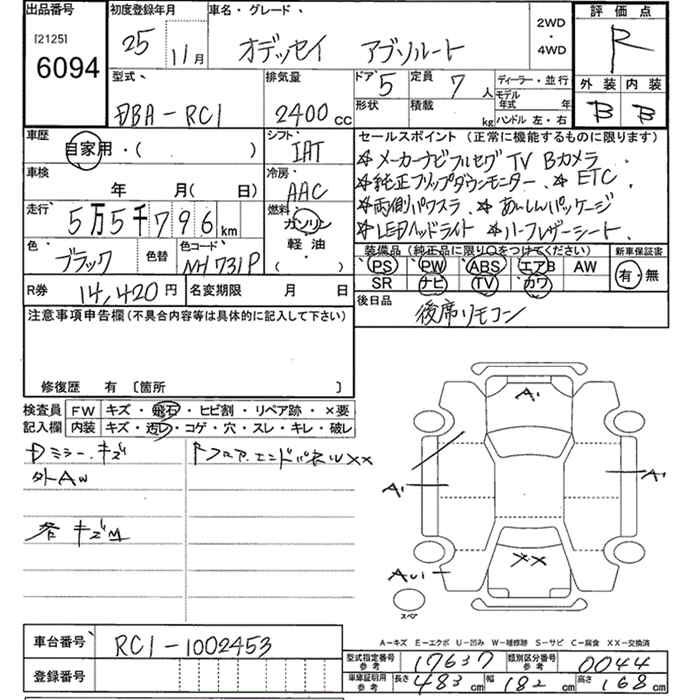 出品番号 初度登録年月 車名・グレード、 2WD・4WD 評価点
[2125] 6094 25 11月 オデッセイ アブソルート R
型式 排気量 ドア 5 定員 7人 ディーラー・並行 外装 内装
DBA-RC1 2400cc 形状 積載 kg モデル年式 年 ハンドル 左・右 B B
車歴 自家用・( ) シフト IAT セールスポイント(正常に機能するものに限ります)
☆メーカーナビフルセグTV Bカメラ
車検 年 月(日) 冷房 AAC ☆純正フリップダウンモニター ☆ETC
走行 5万5千796km 燃料 ガソリン・軽油・( ) ☆両側パワスラ ☆あんしんパッケージ
☆LEDヘッドライト ☆ハーフレザーシート
色 ブラック 色替 色コード NH731P 装備品(純正品に限り○をつけてください) 新車保証書
PS PW ABS エアB AW 有・無
SR ナビ TV カワ
R券 14,420円 名変期限 月 日 後日品 後席リモコン
注意事項申告欄(不具合内容等は具体的に記入して下さい)
修復歴 有 〔箇所 〕
検査員記入欄 FW キズ・飛石・ヒビ割・リペア跡・×要
内装 キズ・汚レ・コゲ・穴・スレ・キレ・破レ
ミラーキズ Fフロア エンドパネルXX
外AW
キズM
A1
A1 A1
XX
AU1
スペア
A-キズ E-エクボ U-凹み W-補修跡 S-サビ C-腐食 XX-交換済
車台番号 RC1-1002453
型式指定番号 参考 17637 類別区分番号 参考 0044
登録番号 車庫証明用 参考 長さ 483cm 幅 182cm 高さ 168cm